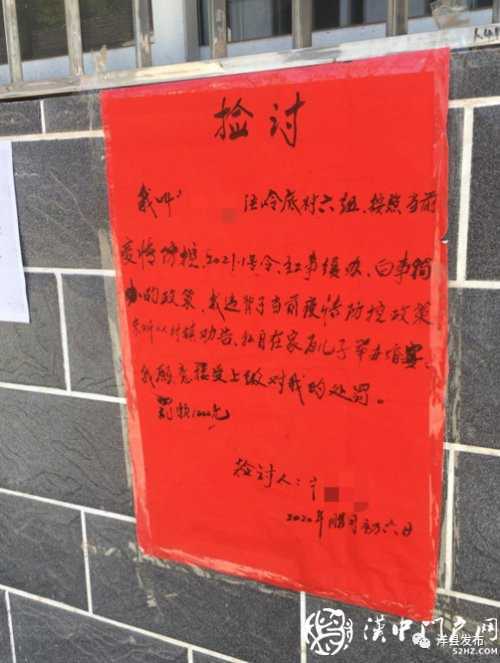 捡讨
我叫
住岭底村六组,按照当前
疫情防控,2021·1号令,红事缓办,白事简
办的政策,我违背了当前疫情防控政策
未听从村镇劝告,私自在家为儿子举办婚宴,
我愿意接受上级对我的处罚。
罚款1000元
捡讨人:宁
2020年腊月初六日
汉中门户网
洋县发布
52HZ.COM